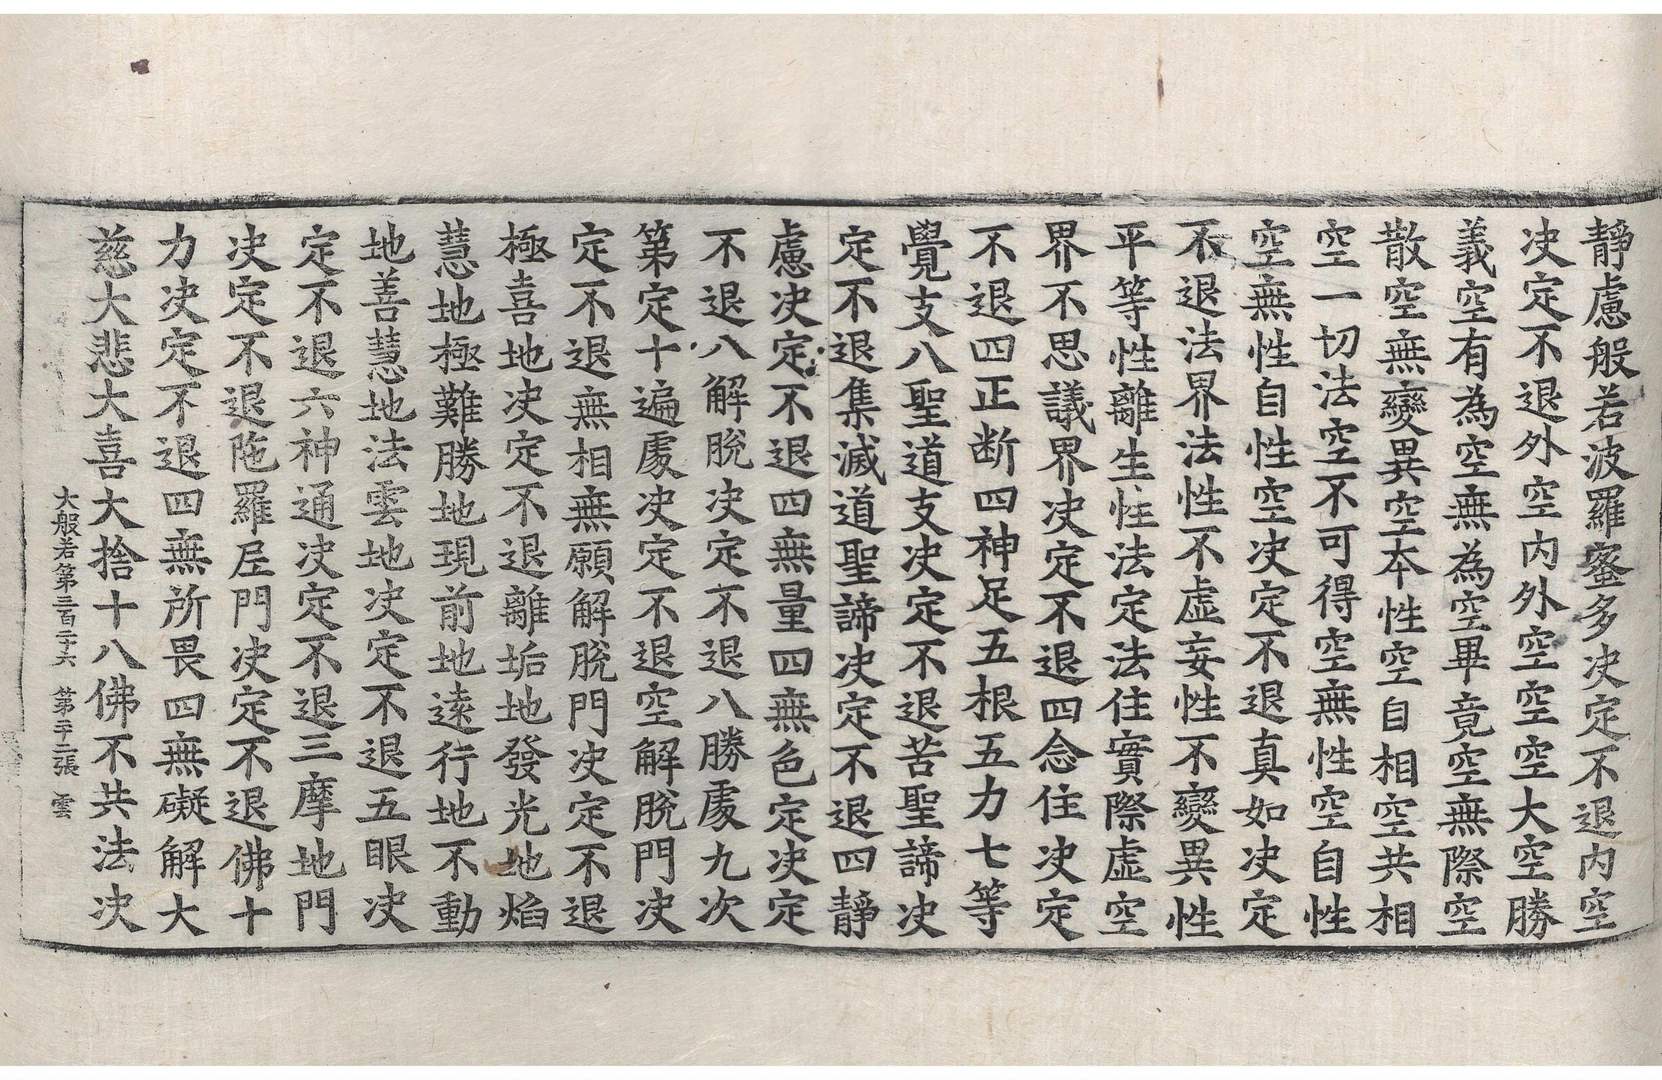 靜慮般若波羅蜜多决定不退內空
决定不退外空內外空空空大空勝
義空有為空無為空畢竟空無際空
散空無變異空本性空自相空共相
空一切法空不可得空無性空自性
空無性自性空决定不退真如决定
不退法界法性不虛妄性不變異性
平等性離生性法定法住實際虛空
界不思議界决定不退四念住决定
不退四正断四神足五根五力七等
覺支八聖道支决定不退苦聖諦决
定不退集滅道聖諦决定不退四靜
慮决定不退四無量四無色定决定
不退八解脫决定不退八勝處九次
第定十遍處决定不退空解脫門决
定不退無相無願解脫門决定不退
極喜地决定不退離垢地發光地焰
慧地極難勝地現前地遠行地不動
地善慧地法雲地决定不退五眼决
定不退六神通决定不退三摩地門
决定不退陁羅尼門决定不退佛十
力决定不退四無所畏四無礙解大
慈大悲大喜大捨十八佛不共法决
大般若第三百二十六 第二十二張 雲